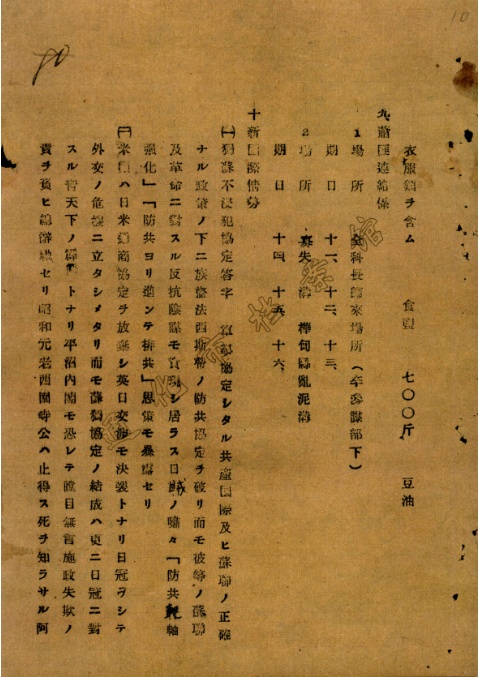 10
衣服類ヲ含ム　食鹽　七〇〇斤　豆油
九、蕭匪連絡係
1 場所　金科長歸來場所(卒參謀部下)
期日　十一、十二、十三、
2 場所　寡失溝　樺甸縣亂泥溝
期日　十四、十五、十六、
十、新國際情勢
(一)獨蘇不浸犯協定簽字　軍部協定シタル共產國際及ヒ蘇聯ノ正確
ナル政策ノ下ニ族整法西斯帝ノ防共協定ヲ破リ而モ彼等ノ蘇聯
及革命ニ對スル反抗陰謀モ實現シ居ラス日賊ノ嘯々「防共軌軸
强化」「防共ヨリ進ンテ排共」愚策モ暴露セリ
(二)米國ハ日米通商協定ヲ放棄シ英日交涉モ決裂トナリ日冠ヲシテ
外交ノ危機ニ立タシメタリ而モ蘇獨協定ノ結成ハ更ニ日冠ニ對
スル靑天下ノ トナリ平沼內閣モ恐レテ瞠目無言施政失欺ノ
責ヲ負ヒ總辭職セリ昭和元老西園寺公ハ止得ス死ヲ知ラサル阿